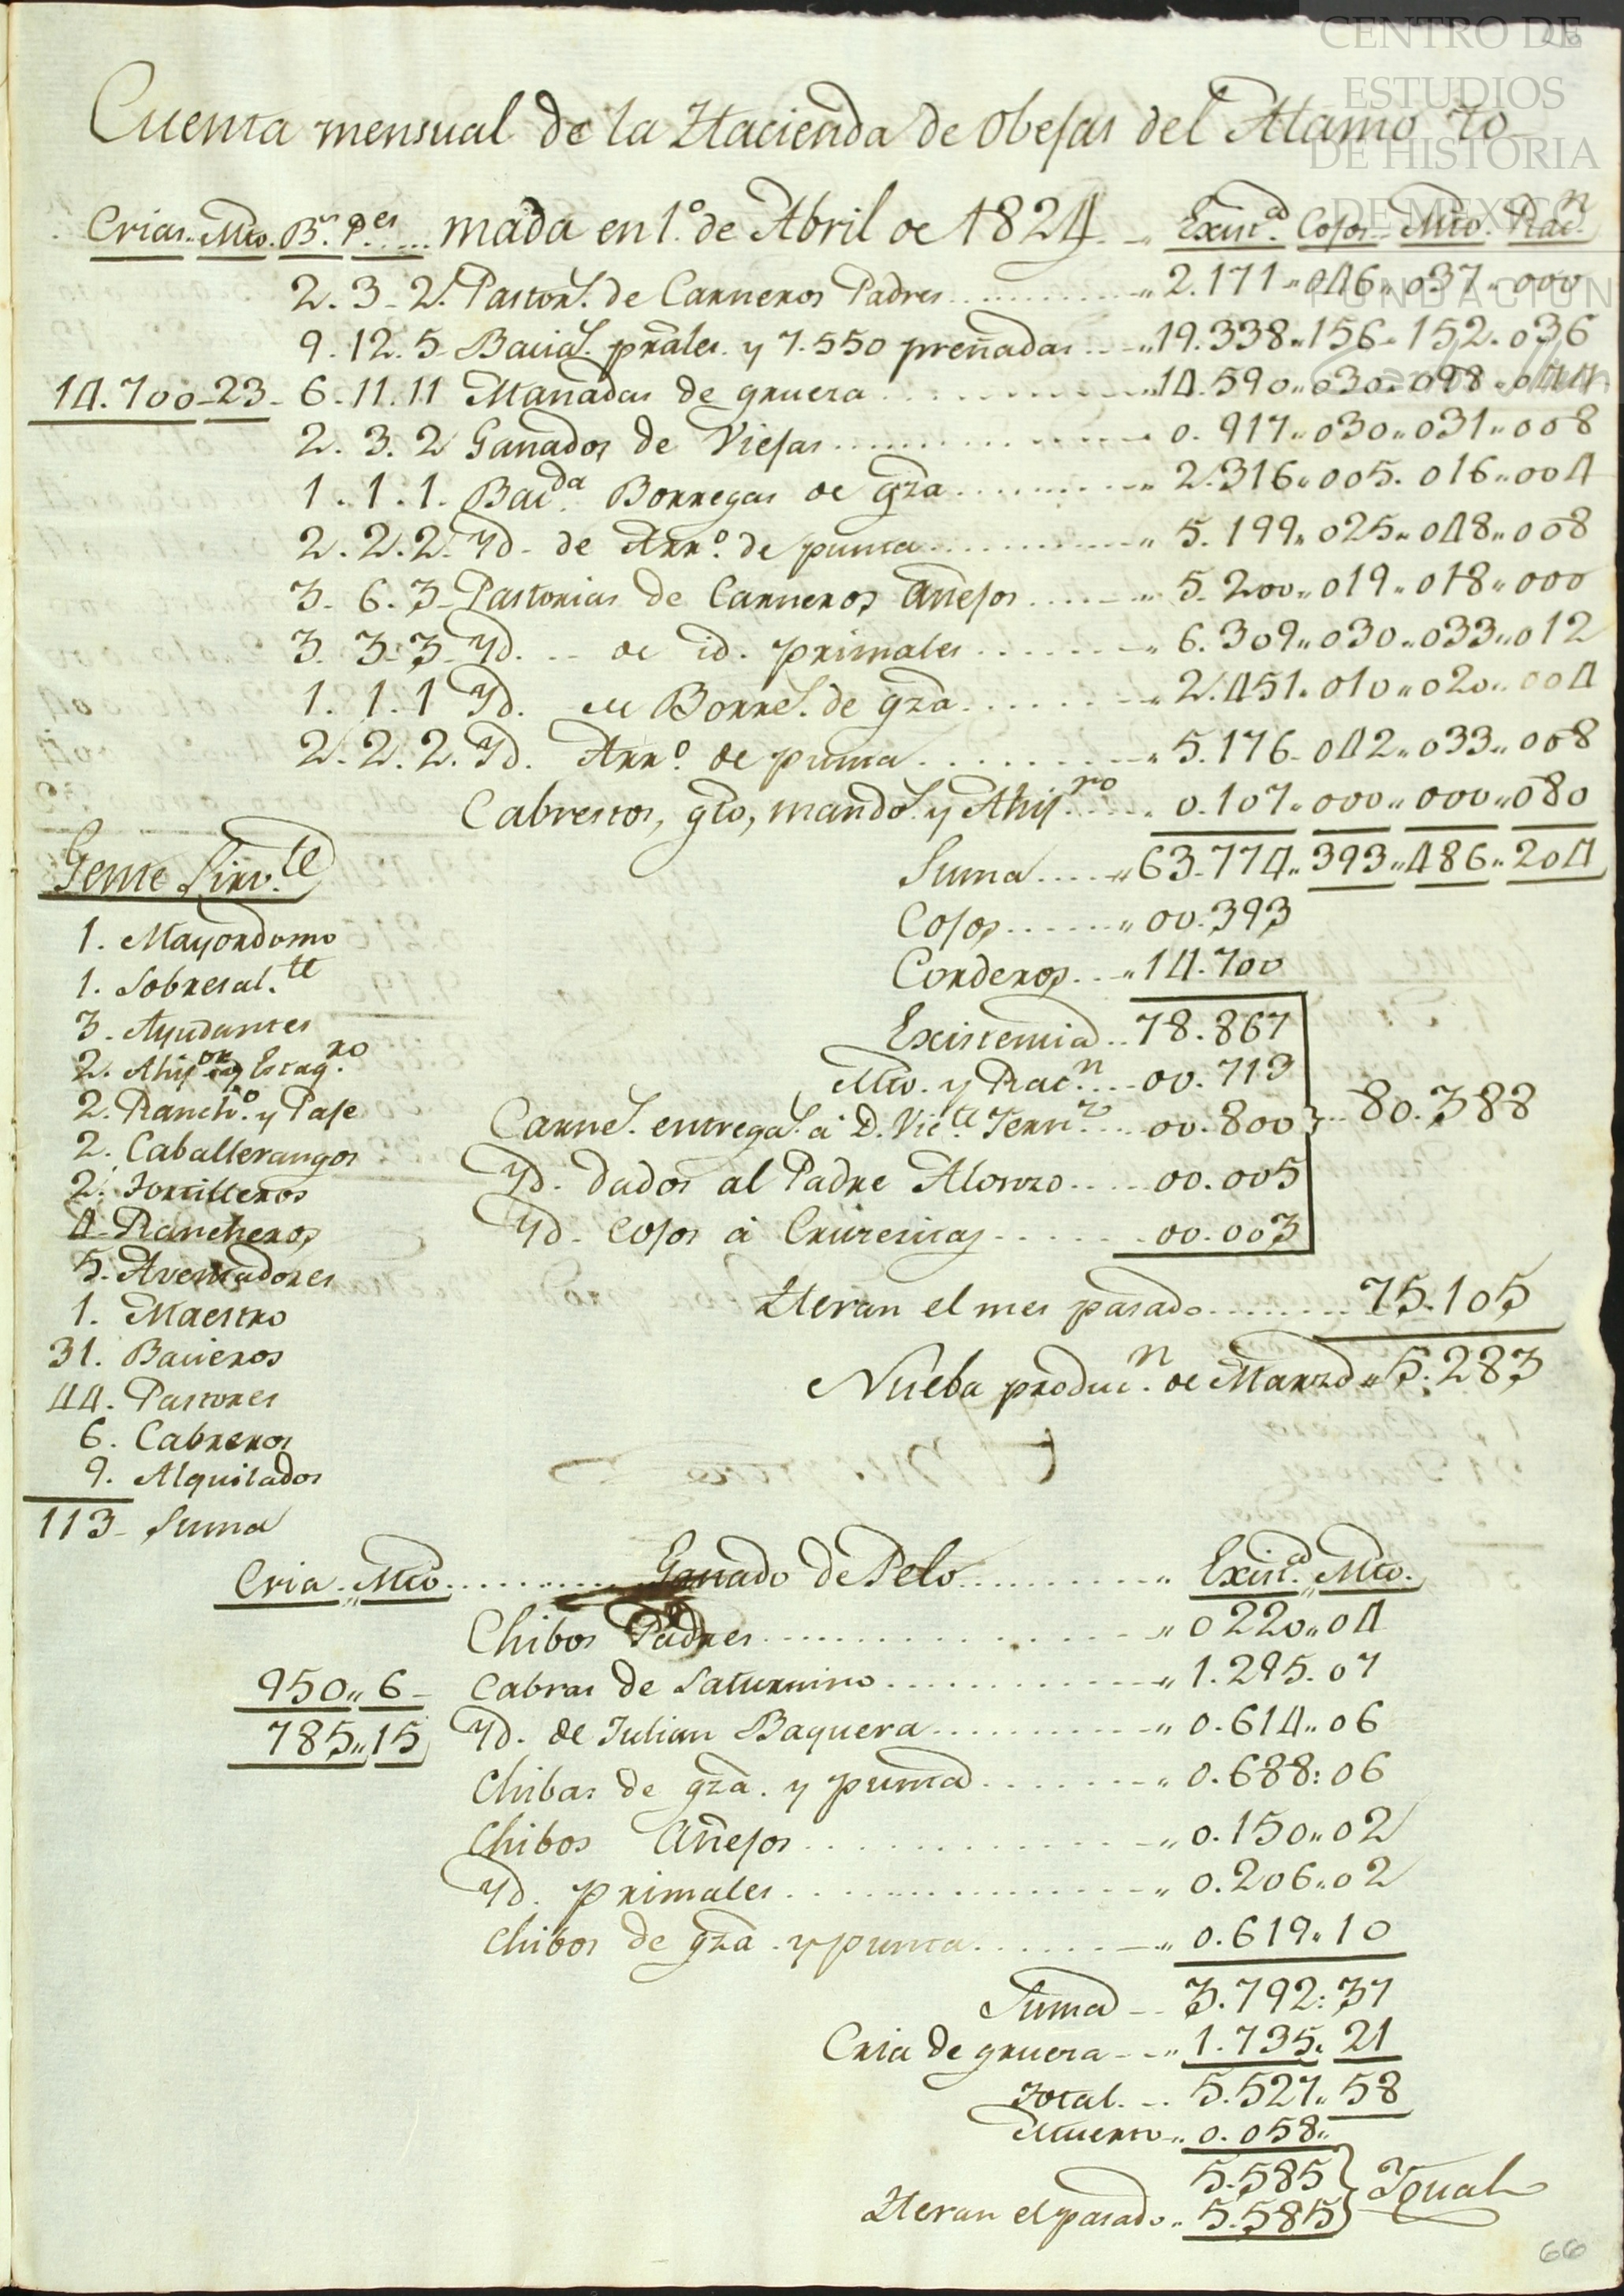 CENTRO DE
ESTUDIOS
DE HISTORIA
DE MEXICO
FUNDACION
Cuenta mensual de la Hacienda de Obejas del Alamo to
Crias. Mto. Bs. Pes. mada en 1.º de Abril de 1824 Existª. Cojos. Mto. Racn.
2. 3. 2. Pastors. de Carneros Padres 2.171 046 037 000
9. 12. 5 Bacias. prales. y 7.550 preñadas 19.338 156 152 036
14.700 23 6. 11. 11 Manadas de gruesa 14.590 030 098 044
2. 3. 2 Ganados de Viejas 0.917 030 031 008
1. 1. 1. Bacda. Borregas de gza 2.316 005 016 004
2. 2. 2. Yd. de Arrº. de punta 5.199 025 048 008
3. 6. 3 Pastorias de Carneros añejos 5.200 019 018 000
3. 3. 3 Yd. de id. primales 6.309 030 033 012
1. 1. 1 Yd. de Borrs. de gza 2.451 010 020 004
2. 2. 2. Yd. Arrº. de punta 5.176 042 033 008
Cabrestos, gto, mandos. y Ahijro 0.107 000 000 080
Suma 63.774 393 486 204
Cojos 00.393
Corderos 14.700
Existencia 78.867
Mto. y Racn. 00.713
Carns. entregas. á D. Victe. Ferrz. 00.800 80.388
Yd. dados al Padre Alonzo 00.005
Yd. cojos á 00.003
Heran el mes pasado 75.105
Nueba producn. de Marzo 5.283
Gente Sirvte
1. Mayordomo
1. Sobresalte.
3. Ayudantes
2. Ahijor y Escagro.
2. Ranchº. y Paje
2. Caballerangos
2. Tortilleros
4. Rancheros
5. Aventadores
1. Maestro
31. Bacieros
44. Pastores
6. Cabreros
9. Alquilados
113 Suma
Cria. Mto. Ganado de Pelo Existª. Mto.
Chibos Padres 0220 04
950 6 Cabras de Saturnino 1.295 07
785 15 Yd. de Julian Baquera 0.614 06
Chibas de gza. y punta 0.688 06
Chibos Añejos 0.150 02
Yd. primales 0.206 02
Chibos de gza. y punta 0.619 10
Suma 3.792 37
Cria de gruesa 1.735 21
Total 5.527 58
Muerto 0.058
5.585 Igual
Heran el pasado 5.585
66